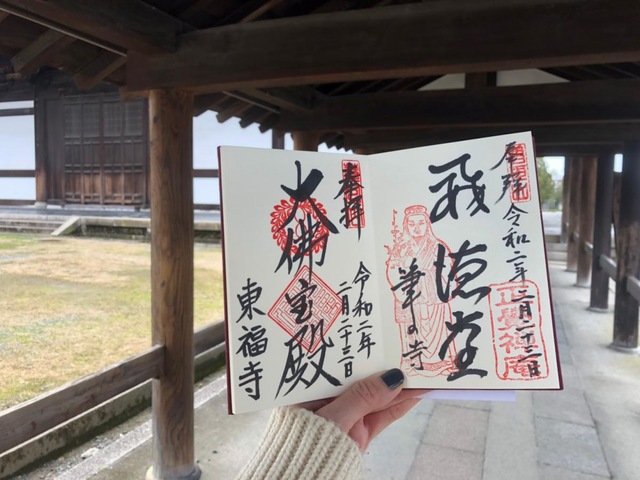 奉拝 令和二年二月二十三日
正覺禅庵
筆の寺
奉拝
令和二年
二月二十三日
大佛宝殿
東福寺